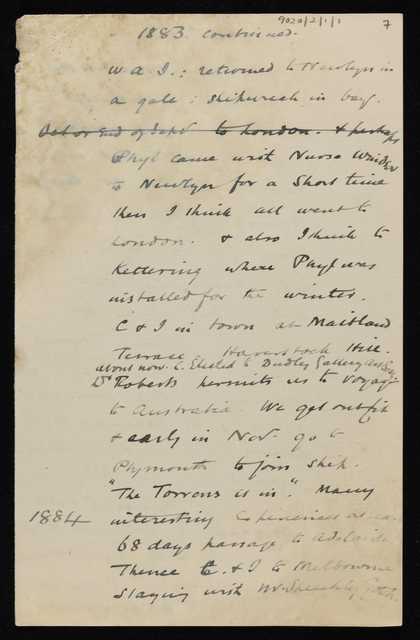 9020/2/1/1
7
1883 continued.
W A I.: returned to Newlyn in
a gale: shipwreck in bay.
Oct or End of Sept to London. & perhaps
Phyl came with Nurse
to Newlyn for a short time
then I think all went to
London. & also I think to
Kettering where Phyl was
installed for the winter.
C & I in town at Maitland
Terrace Haverstock Hill.
about now. C. Elected to Dudley Gallery Art Soc
Dr Roberts permits us to voyage
to Australia. We get outfit
& early in Nov. go to
Plymouth to join ship.
"The Torrens is in". Many
1884 interesting experiences
68 days passage to Adelaide
Thence C. & I to Melbourne
Staying with Mr.